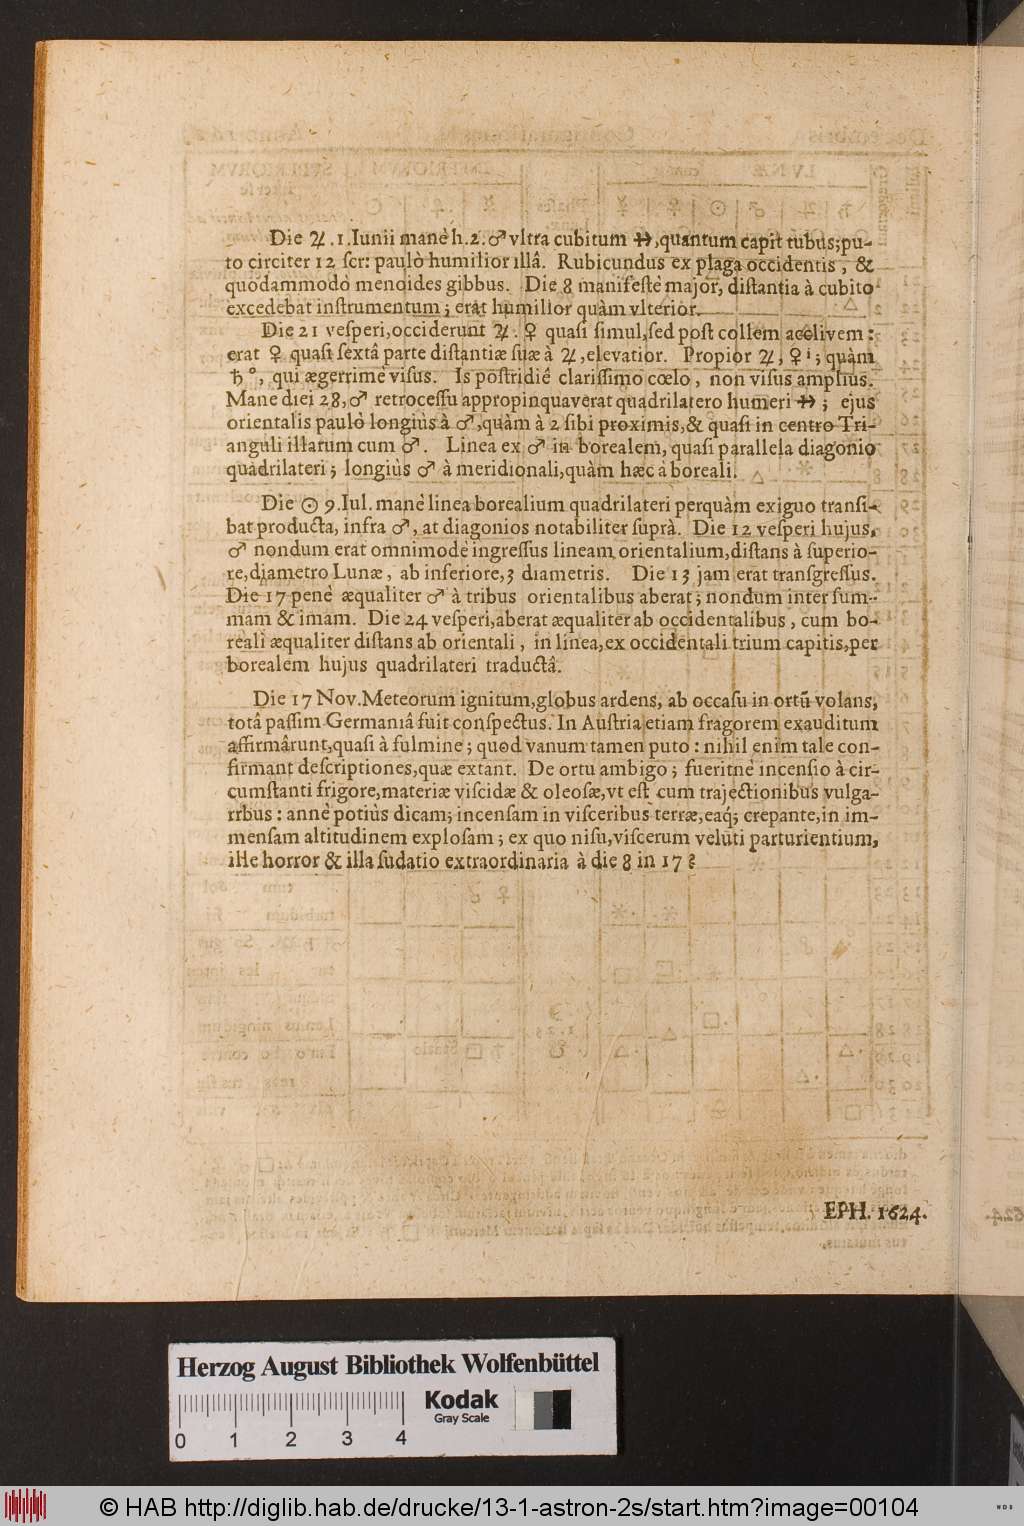 Die ♃. 1. Iunii manè h. 2. ♂ vltra cubitum ♐, quantum capit tubus; pu-
to circiter 12 ſcr: paulò humilior illâ. Rubicundus ex plaga occidentis, &
quodammodò menoides gibbus. Die 8 manifeſtè major, diſtantia à cubito
excedebat inſtrumentum; erat humilior quàm vlterior.
Die 21 veſperi, occiderunt ♃. ♀ quaſi ſimul, ſed poſt collem acclivem:
erat ♀ quaſi ſextâ parte diſtantiæ ſuæ à ♃, elevatior. Propior ♃, ♀ i; quàm
♄ o, qui ægerrimè viſus. Is poſtridiè clariſſimo cœlo, non viſus amplius.
Mane diei 28, ♂ retroceſſu appropinquaverat quadrilatero humeri ♐; ejus
orientalis paulò longiùs à ♂, quàm à 2 ſibi proximis, & quaſi in centro Tri-
anguli illarum cum ♂. Linea ex ♂ in borealem, quaſi parallela diagonio
quadrilateri; longiùs ♂ à meridionali, quàm hæc à boreali.
Die ☉ 9. Iul. manè linea borealium quadrilateri perquàm exiguo tranſi-
bat producta, infra ♂, at diagonios notabiliter ſuprà. Die 12 veſperi hujus,
♂ nondum erat omnimodè ingreſſus lineam orientalium, diſtans à ſuperio-
re, diametro Lunæ, ab inferiore, 3 diametris. Die 13 jam erat tranſgreſſus.
Die 17 penè æqualiter ♂ à tribus orientalibus aberat; nondum inter ſum-
mam & imam. Die 24 veſperi, aberat æqualiter ab occidentalibus, cum bo-
reali æqualiter diſtans ab orientali, in linea, ex occidentali trium capitis, per
borealem hujus quadrilateri traductâ.
Die 17 Nov. Meteorum ignitum, globus ardens, ab occaſu in ortũ volans,
totâ paſſim Germaniâ fuit conſpectus. In Auſtria etiam fragorem exauditum
affirmârunt, quaſi à fulmine; quod vanum tamen puto: nihil enim tale con-
firmant deſcriptiones, quæ extant. De ortu ambigo; fueritnè incenſio à cir-
cumſtanti frigore, materiæ viſcidæ & oleoſæ, vt eſt cum trajectionibus vulga-
rrbus: annè potiùs dicam; incenſam in viſceribus terræ, eaq́; crepante, in im-
menſam altitudinem exploſam; ex quo niſu, viſcerum velùti parturientium,
ille horror & illa ſudatio extraordinaria à die 8 in 17?
EPH. 1624.
Herzog August Bibliothek Wolfenbüttel
Kodak
Gray Scale
0 1 2 3 4
© HAB http://diglib.hab.de/drucke/13-1-astron-2s/start.htm?image=00104